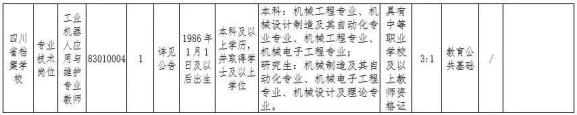 四川省档案学校
专业技术岗位
工业机器人应用与维护专业教师
83010004
1
详见公告
1986年1月1日及以后出生
本科及以上学历，并取得学士及以上学位
本科：机械工程专业、机械设计制造及其自动化专业业专业、机械工程专业、机械电子工程专业；
研究生：机械制造及其自动化专业、机械电子工程专业、机械设计及理论专业。
具有中等职业学校及以上教师资格证
3:1
教育公共基础
/